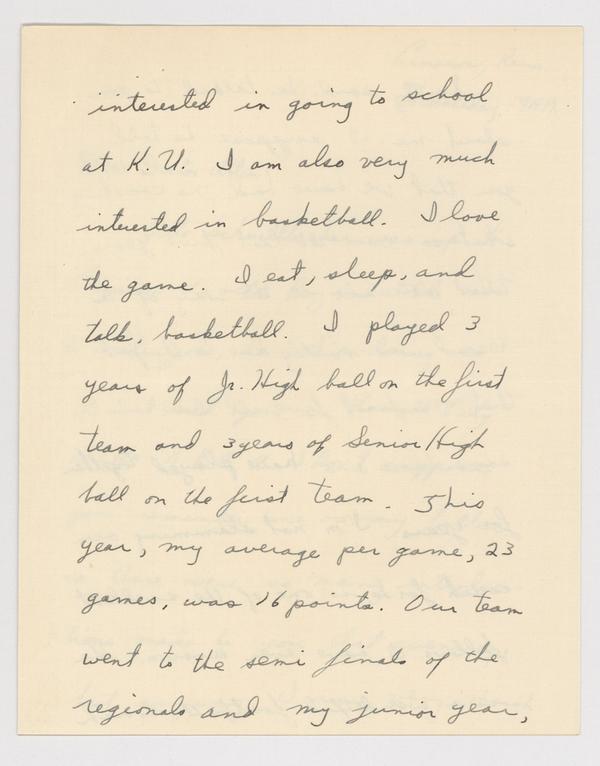 interested in going to school
at K. U. I am also very much
interested in basketball. I love
the game. I eat, sleep, and
talk, basketball. I played 3
years of Jr. High ball on the first
team and 3 years of Senior High
ball on the first team. This
year, my average per game, 23
games, was 16 points. Our team
went to the semi finals of the
regionals and my junior year,